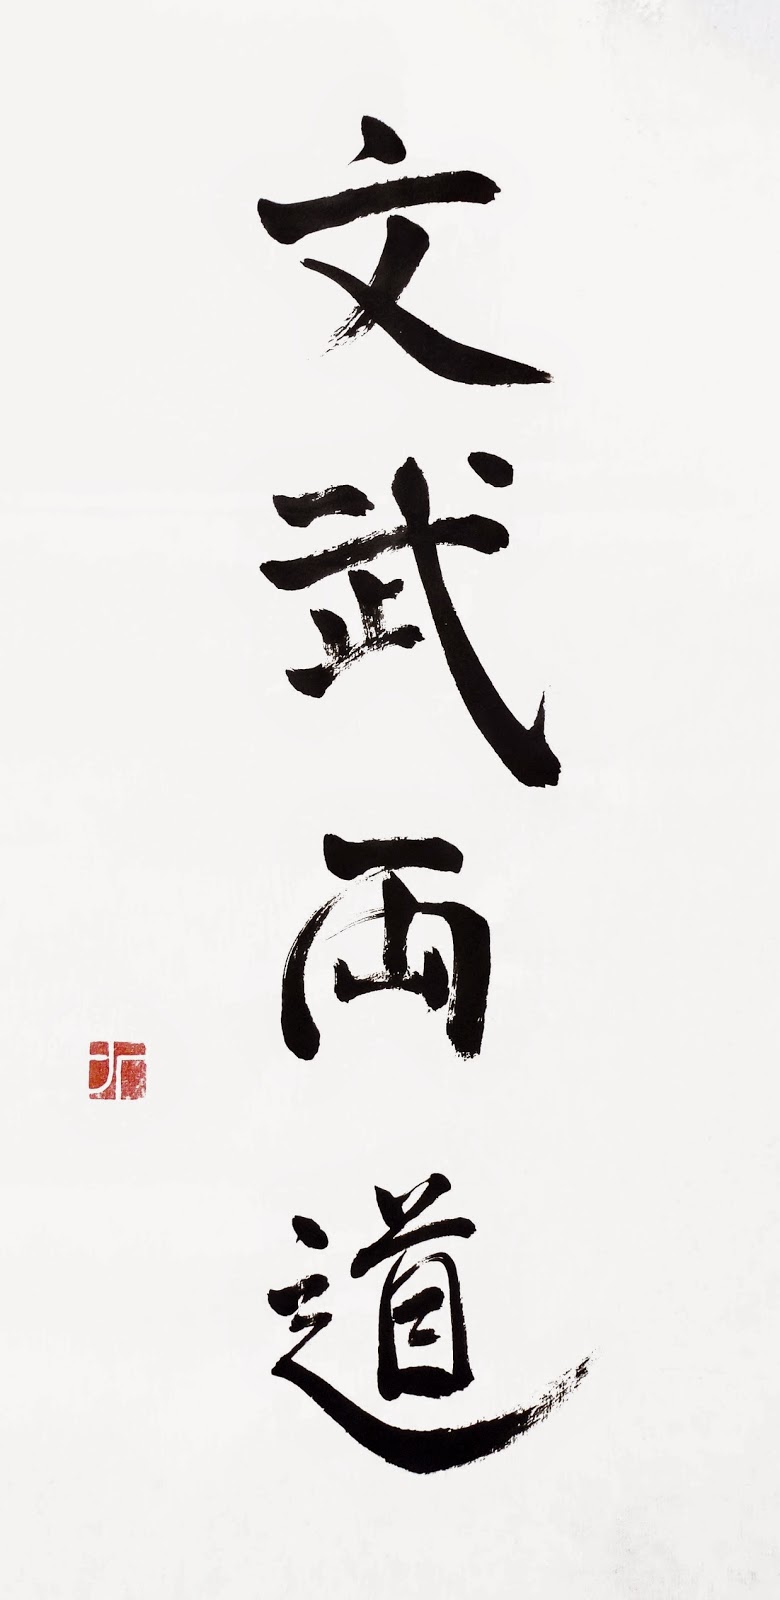 文武両道